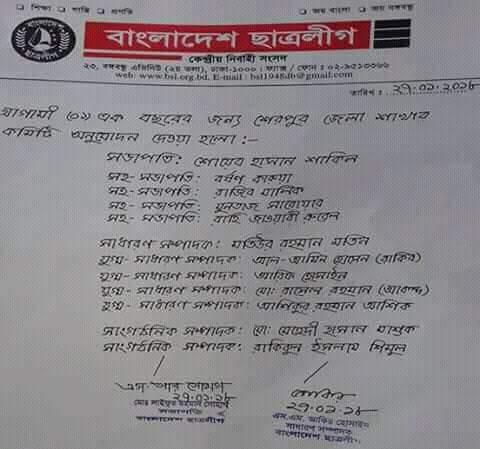 ❑ শিক্ষা ❑ শান্তি ❑ প্রগতি
❑ জয় বাংলা ❑ জয় বঙ্গবন্ধু
বাংলাদেশ ছাত্রলীগ
কেন্দ্রীয় নির্বাহী সংসদ
২৩, বঙ্গবন্ধু এভিনিউ (২য় তলা), ঢাকা-১০০০। ফ্যাক্স / ফোন : ০২-৯৫১৩৩৬৬
web: www.bsl.org.bd E-mail: bsl1948db@gmail.com
তারিখ : ২৭.০১.২০১৮
আগামী (০১) এক বছরের জন্য শেরপুর জেলা শাখার
কমিটি অনুমোদন দেওয়া হলো :-
সভাপতি: শোয়েব হাসান শাকিল
সহ- সভাপতি: বর্ষণ কারুয়া
সহ- সভাপতি: রাজিব মালিক
সহ- সভাপতি: মুনতাজ সারোয়ার
সহ- সভাপতি: রাহি জওয়ারী রুবেল
সাধারণ সম্পাদক: মতিউর রহমান মতিন
যুগ্ম- সাধারণ সম্পাদক: আল-আমিন হোসেন (রাকিব)
যুগ্ম- সাধারণ সম্পাদক: আরিফ হোসাইন
যুগ্ম- সাধারণ সম্পাদক: মো: রাসেল রহমান (আকন্দ)
যুগ্ম- সাধারণ সম্পাদক: আশিকুর রহমান আশিক
সাংগঠনিক সম্পাদক: মো: মেহেদী হাসান মাশুক
সাংগঠনিক সম্পাদক: রাকিবুল ইসলাম শিমুল
এস. আর সোহাগ
২৭.০১.১৮
মোঃ সাইফুর রহমান সোহাগ
সভাপতি
বাংলাদেশ ছাত্রলীগ
জাকির
২৭.০১.১৮
এস.এম. জাকির হোসাইন
সাধারণ সম্পাদক
বাংলাদেশ ছাত্রলীগ